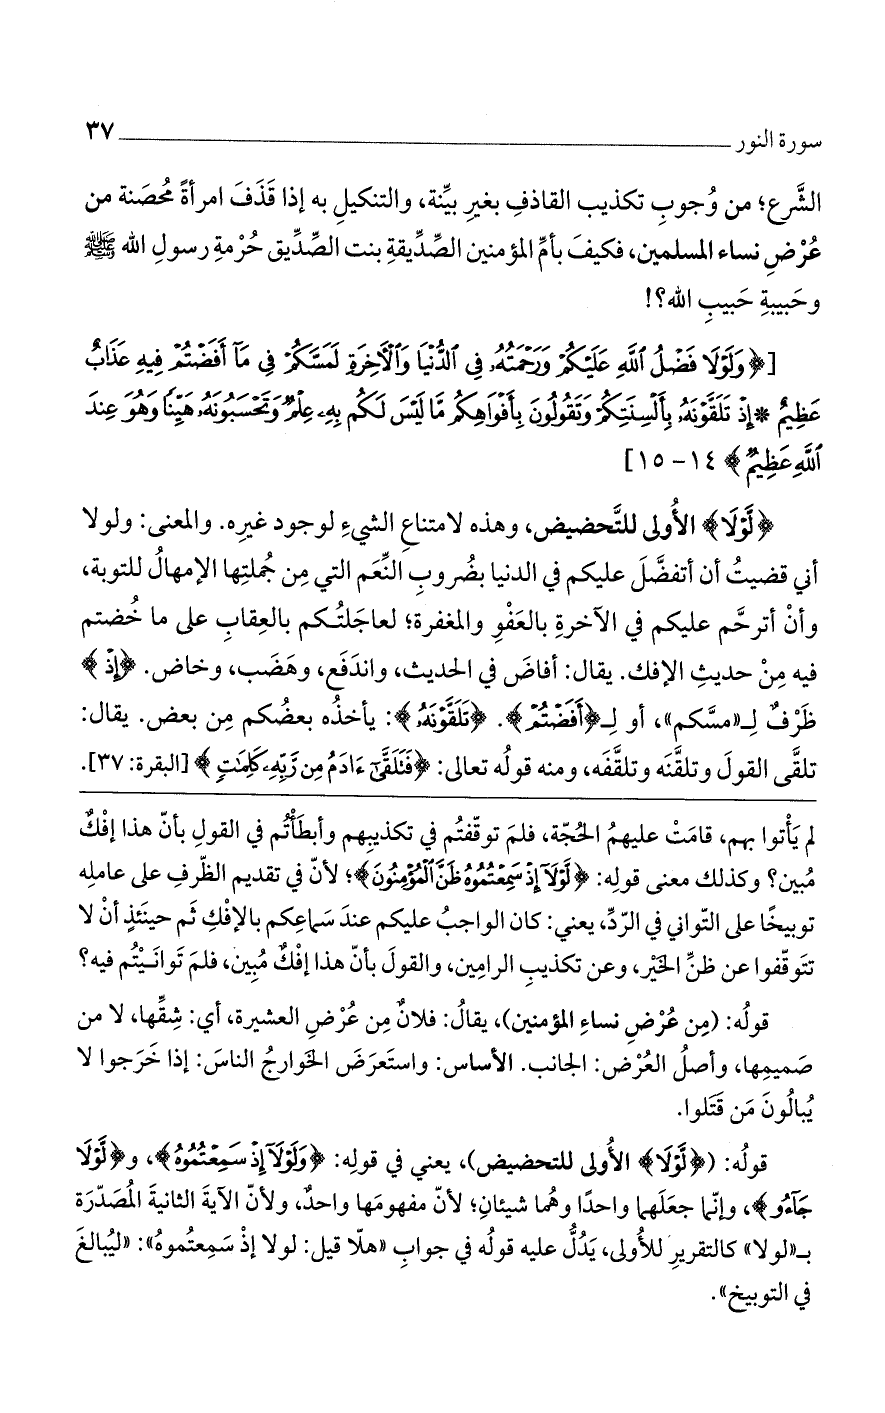 سورة النور ٣٧
الشَّرع؛ من وُجوبِ تكذيب القاذفِ بغيرِ بيِّنة، والتنكيلِ به إذا قَذَفَ امرأةً مُحصَنة من
عُرْضِ نساء المسلمين، فكيفَ بأمِّ المؤمنين الصِّدِّيقةِ بنت الصِّدِّيق حُرْمةِ رسولِ الله ﷺ
وحَبيبةِ حَبيبِ الله؟!
[﴿وَلَوْلَا فَضْلُ ٱللَّهِ عَلَيْكُمْ وَرَحْمَتُهُۥ فِي ٱلدُّنْيَا وَٱلْأَخِرَةِ لَمَسَّكُمْ فِي مَآ أَفَضْتُمْ فِيهِ عَذَابٌ
عَظِيمٌ * إِذْ تَلَقَّوْنَهُۥ بِأَلْسِنَتِكُمْ وَتَقُولُونَ بِأَفْوَاهِكُم مَّا لَيْسَ لَكُم بِهِۦ عِلْمٌ وَتَحْسَبُونَهُۥ هَيِّنًا وَهُوَ عِندَ
ٱللَّهِ عَظِيمٌ﴾ ١٤ - ١٥]
﴿لَّوْلَا﴾ الأُولى للتَّحضيض، وهذه لامتناعِ الشيءِ لوجود غيرِه. والمعنى: ولولا
أني قضيتُ أن أتفضَّلَ عليكم في الدنيا بضُروبِ النِّعَم التي مِن جُملتِها الإمهالُ للتوبة،
وأنْ أترحَّم عليكم في الآخرةِ بالعَفْوِ والمغفرة؛ لعاجَلتُكم بالعِقابِ على ما خُضتم
فيه مِنْ حديثِ الإفك. يقال: أفاضَ في الحديث، واندَفَع، وهَضَب، وخاض. ﴿إِذْ﴾
ظَرْفٌ لِـ«مسَّكم»، أو لِـ﴿أَفَضْتُمْ﴾. ﴿تَلَقَّوْنَهُۥ﴾: يأخذُه بعضُكم مِن بعض. يقال:
تلقَّى القولَ وتلقَّنَه وتلقَّفَه، ومنه قولُه تعالى: ﴿فَتَلَقَّىٰٓ ءَادَمُ مِن رَّبِّهِۦ كَلِمَٰتٍ﴾ [البقرة: ٣٧].
لم يَأْتوا بهم، قامَتْ عليهمُ الحُجّة، فلمَ توقّفتُم في تكذيبِهم وأبطَأْتُم في القولِ بأنّ هذا إفْكٌ
مُبين؟ وكذلك معنى قولِه: ﴿لَّوْلَآ إِذْ سَمِعْتُمُوهُ ظَنَّ ٱلْمُؤْمِنُونَ﴾؛ لأنّ في تقديم الظّرفِ على عاملِه
توبيخًا على التّواني في الرّدِّ، يعني: كان الواجبُ عليكم عندَ سَماعِكم بالإفْكِ ثَم حينَئذٍ أنْ لا
تتَوقّفوا عن ظنِّ الخَيْر، وعن تكذيبِ الرامين، والقولَ بأنّ هذا إفْكٌ مُبِين، فلمَ تَوانَيْتُم فيه؟
قولُه: (مِن عُرْضِ نساءِ المؤمنين)، يقالُ: فلانٌ مِن عُرْضِ العشيرة، أي: شِقِّها، لا من
صَميمِها، وأصلُ العُرْض: الجانب. الأساس: واستَعرَضَ الخوارجُ الناسَ: إذا خَرَجوا لا
يُبالُونَ مَن قَتَلوا.
قولُه: (﴿لَّوْلَا﴾ الأُولى للتحضيض)، يعني في قولِه: ﴿وَلَوْلَآ إِذْ سَمِعْتُمُوهُ﴾، و﴿لَّوْلَا
جَآءُو﴾، وإنّما جعَلَهما واحدًا وهُما شيئانِ؛ لأنّ مفهومَها واحدٌ، ولأنّ الآيةَ الثانيةَ المُصدّرَة
بـ«لولا» كالتقريرِ للأُولى، يَدُلُّ عليه قولُه في جوابِ «هلّا قيل: لولا إذْ سَمِعتُموهُ»: «ليُبالغَ
في التوبيخ».